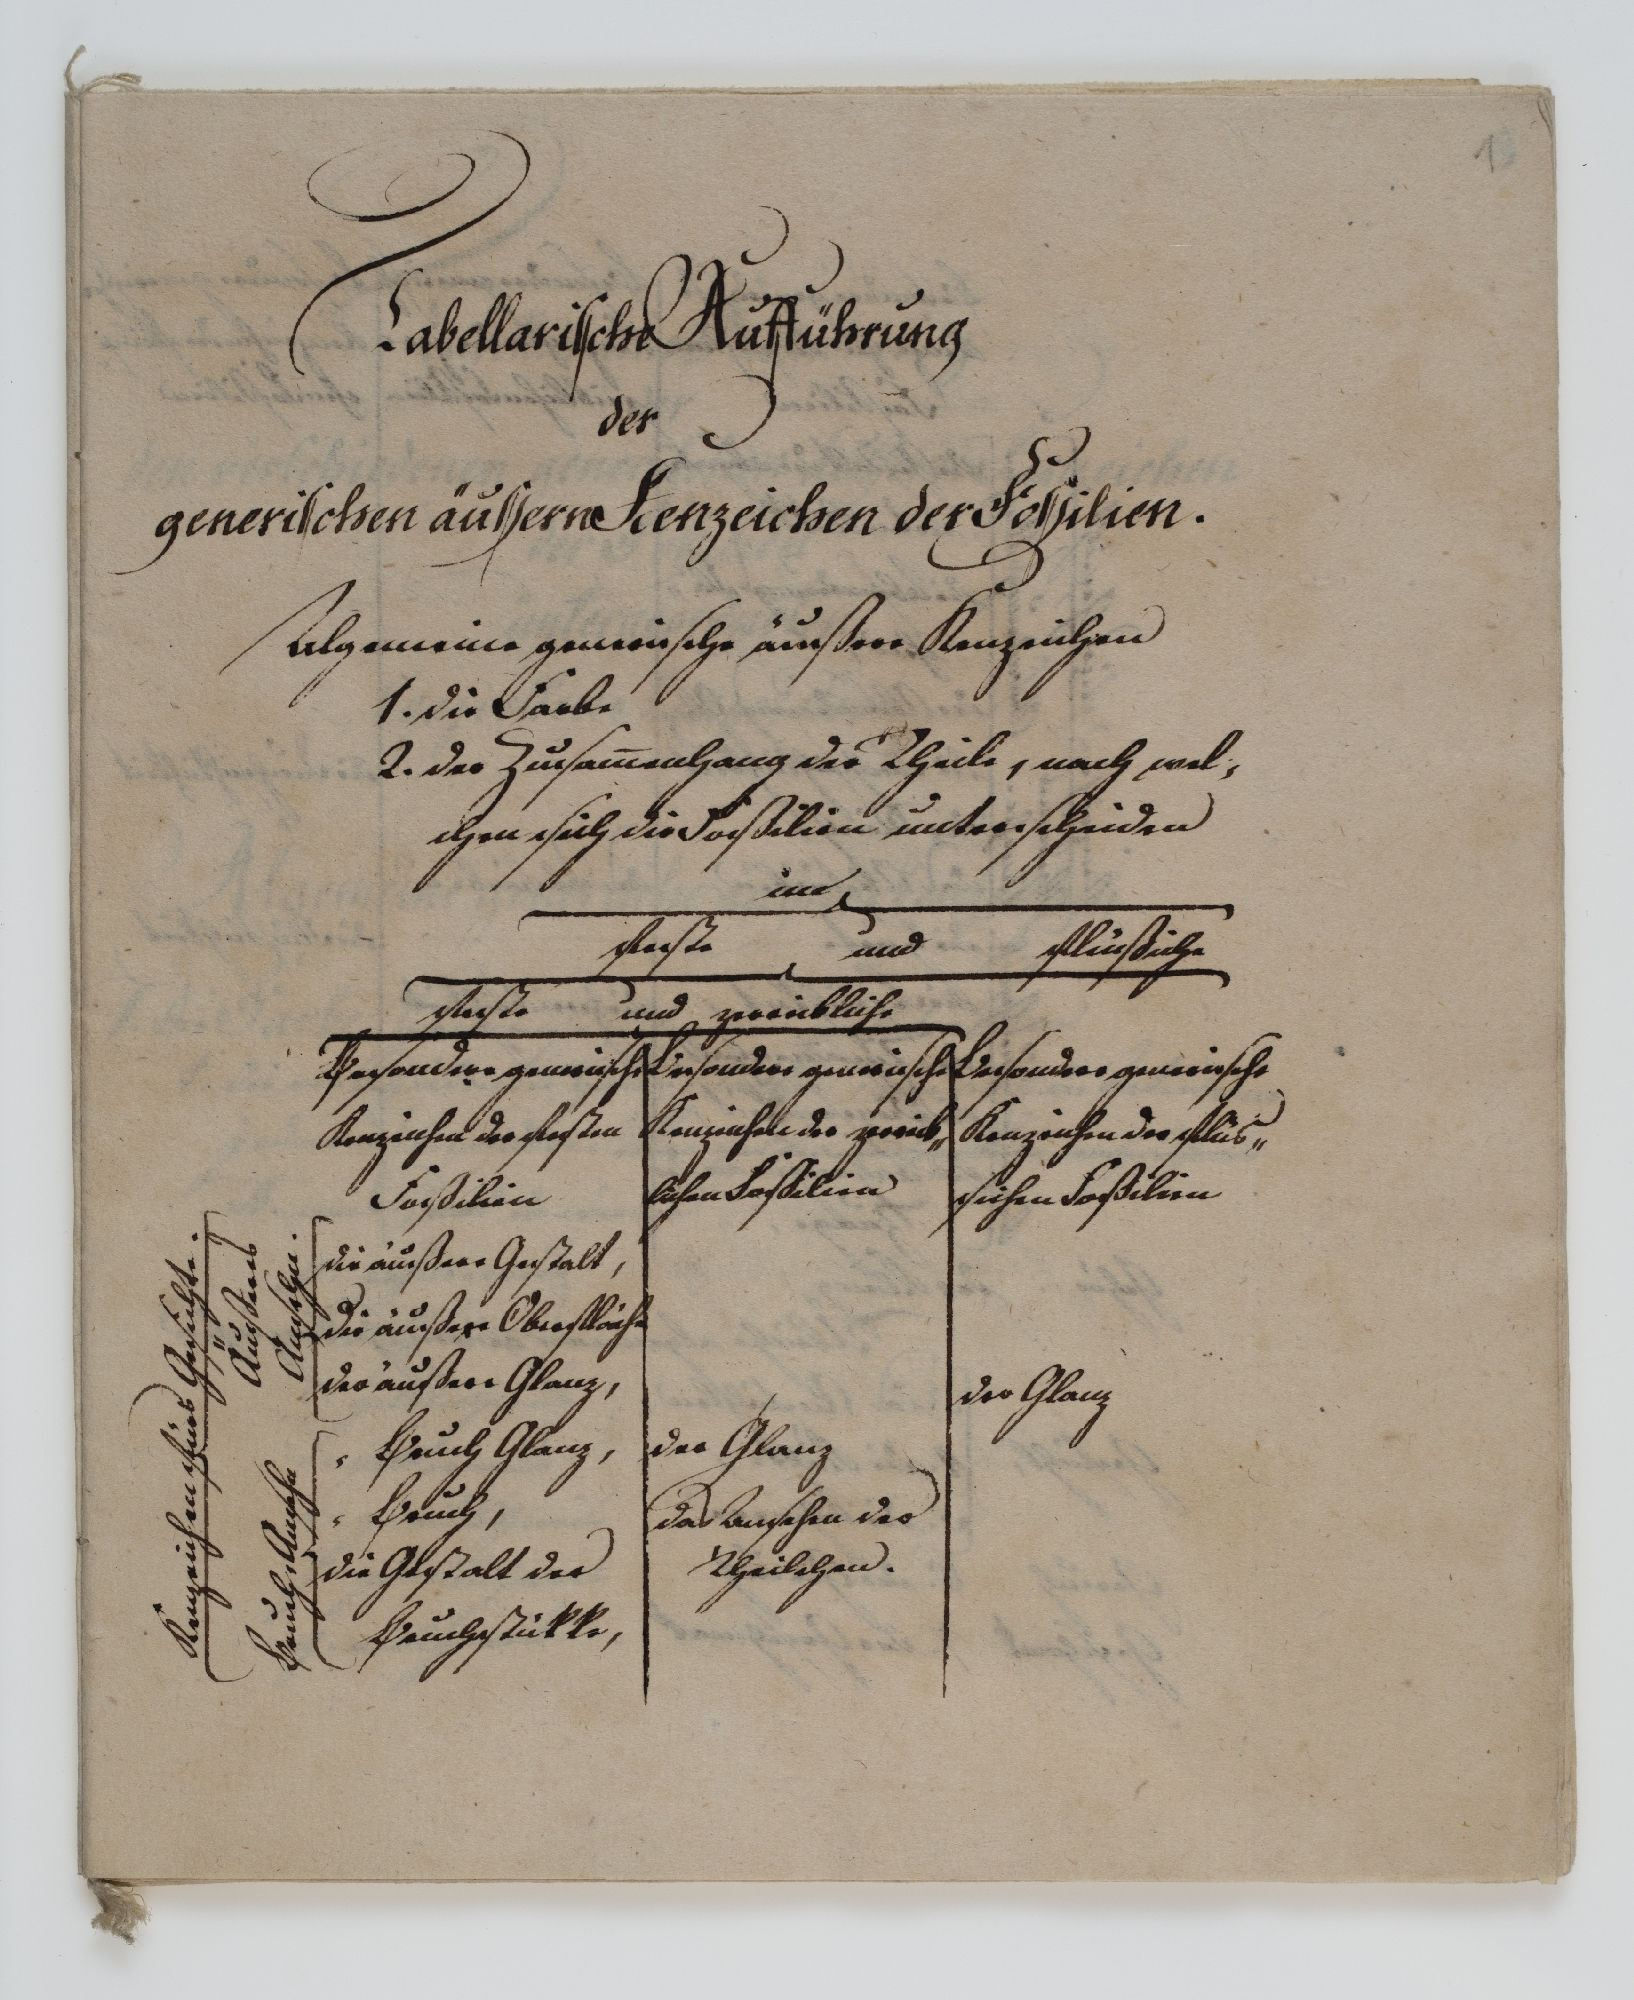 1
Tabellarische Aufführung
der
generischen äussern Kenzeichen der Fossilien.
Algemeine generische äußere Kenzeichen
1. die Farbe
2. der Zusam̅enhang der Theile, nach wel-
chen sich die Foßilien unterscheiden
in
feste und flüßiche
feste und zereibliche
Besondere generische
Kenzeichen der festen
Foßilien
Besondere generische
Kenzeichen der zereib„
lichen Foßilien
Besondere generische
Kenzeichen der flüs„
sichen Foßilien
Kenzeichen fürs Gesichte.
Äußeres
Ansehn.
die äußere Gestalt,
die äußere Oberfläche
der äußere Glanz,
der Glanz
Bruch Ansehn
„ Bruch Glanz,
„ Bruch,
die Gestalt der
Bruchstükke,
der Glanz
das Ansehen der
Theilchen.